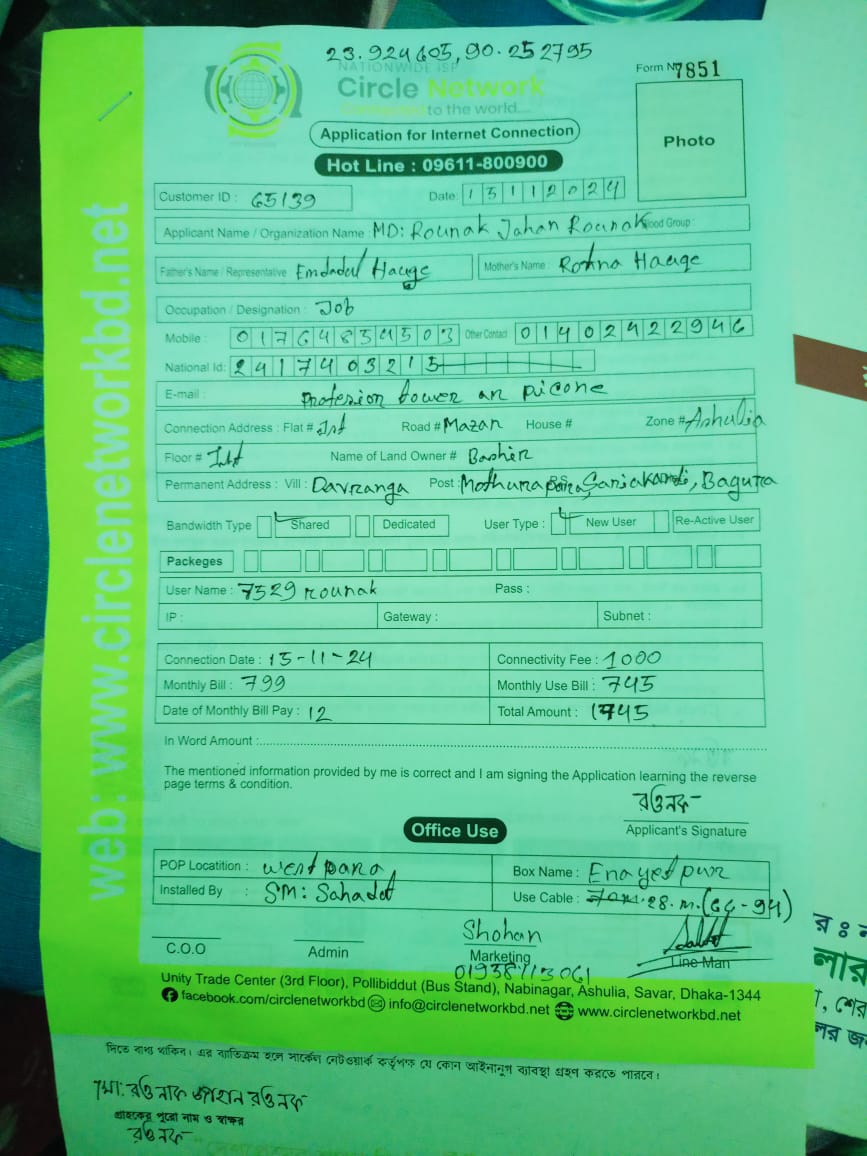 23.924605, 90.252795
NATIONWIDE ISP
Form No 7851
Circle Network
to the world...
Application for Internet Connection
Photo
Hot Line : 09611-800900
Customer ID : 65139
Date: 15112024
Applicant Name / Organization Name : MD: Rounak Jahan Rounak Blood Group :
Father's Name / Representative Emdadul Hauge Mother's Name : Rotna Hauge
Occupation / Designation : Job
Mobile : 01764834503 Other Contact 01402422946
National Id: 2417403215
E-mail : Profesion tower an picone
Connection Address : Flat # 1st Road # Mazar House # Zone # Ashulia
Floor # 1st Name of Land Owner # Basher
Permanent Address : Vill : Davranga Post : Mothurapara P.S. Sariakandi, Bagura
Bandwidth Type Shared Dedicated User Type : New User Re-Active User
Packeges
User Name : 7529 rounak Pass :
IP : Gateway : Subnet :
Connection Date : 15-11-24 Connectivity Fee : 1000
Monthly Bill : 799 Monthly Use Bill : 745
Date of Monthly Bill Pay : 12 Total Amount : 1745
In Word Amount :
The mentioned information provided by me is correct and I am signing the Application learning the reverse
page terms & condition.
রওনক
Applicant's Signature
Office Use
POP Locatition : west para Box Name : Enayetpur
Installed By : SM: Sahadat Use Cable : 28.m.(66-94)
Shohan
C.O.O Admin Marketing Line Man
01938713061
Unity Trade Center (3rd Floor), Pollibiddut (Bus Stand), Nabinagar, Ashulia, Savar, Dhaka-1344
facebook.com/circlenetworkbd info@circlenetworkbd.net www.circlenetworkbd.net
web: www.circlenetworkbd.net
দিতে বাধ্য থাকিব। এর ব্যতিক্রম হলে সার্কেল নেটওয়ার্ক কর্তৃপক্ষ যে কোন আইনানুগ ব্যবস্থা গ্রহণ করতে পারবে।
মো: রওনাক জাহান রওনক
গ্রাহকের পুরো নাম ও স্বাক্ষর
রওনক